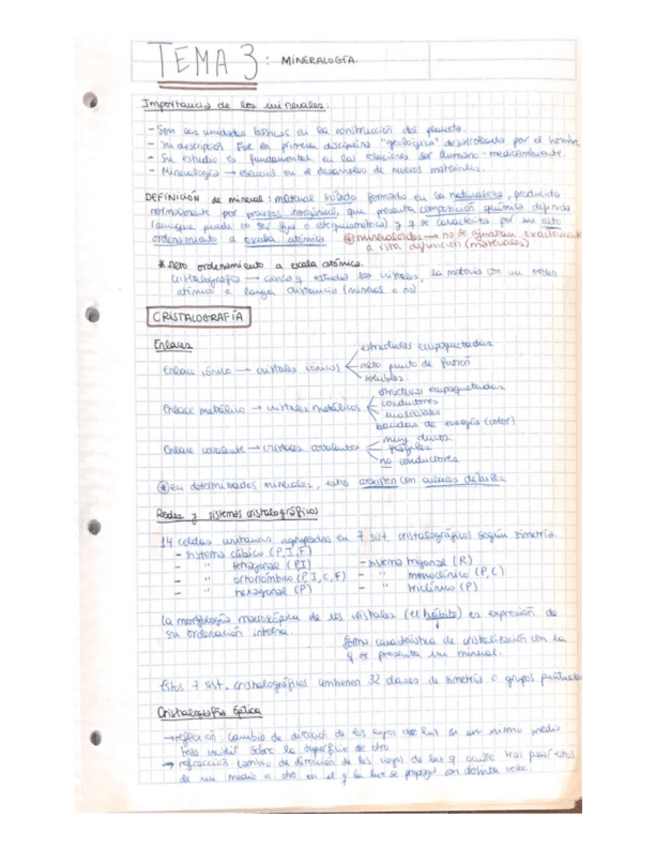 TEMA 3: MINERALOGÍA.
Importancia de los minerales:
- Son las unidades básicas en la construcción del planeta.
- Su descripción fue la primera disciplina "geológica" desarrollada por el hombre
- Su estudio es fundamental en las relaciones ser humano-medioambiente.
- Mineralogía → esencial en el desarrollo de nuevos materiales.
DEFINICIÓN de mineral: material sólido formado en la naturaleza, producido
normalmente por procesos inorgánicos, que presenta composición química definida
(aunque puede no ser fija o estequiométrica) y q se caracteriza por un alto
ordenamiento a escala atómica
* mineraloides → no se ajustan exactamente
a esta definición (materiales)
* Alto ordenamiento a escala atómica.
Cristalografía → ciencia q estudia los cristales, la materia con un orden
atómico a larga distancia (mineral o no)
CRISTALOGRAFÍA
Enlaces
Enlace iónico → cristales iónicos
estructuras empaquetadas
alto punto de fusión
solubles.
Enlace metálico → cristales metálicos
estructuras empaquetadas
conductores
maleables
bandas de energía (color)
Enlace covalente → cristales covalentes
muy duros
frágiles
no conductores
* en determinados minerales, estos coexisten con enlaces débiles
Redes y sistemas cristalográficos
14 celdas unitarias agrupadas en 7 sist. cristalográficos según simetría.
- sistema cúbico (P,I,F)
- " tetragonal (P,I)
- " ortorrómbico (P,I,C,F)
- " hexagonal (P)
- sistema trigonal (R)
- " monoclínico (P,C)
- " triclínico (P)
La morfología macroscópica de los cristales (el hábito) es expresión de
su ordenación interna.
forma característica de cristalización con la
q se presenta un mineral.
Estos 7 sist. cristalográficos contienen 32 clases de simetría o grupos puntuales
Cristalografía óptica
→ reflexión: cambio de dirección de los rayos de luz en un mismo medio
tras incidir sobre la superficie de otro
→ refracción: cambio de dirección de los rayos de luz q ocurre tras pasar estos
de un medio a otro en el q la luz se propaga con distinta veloc.